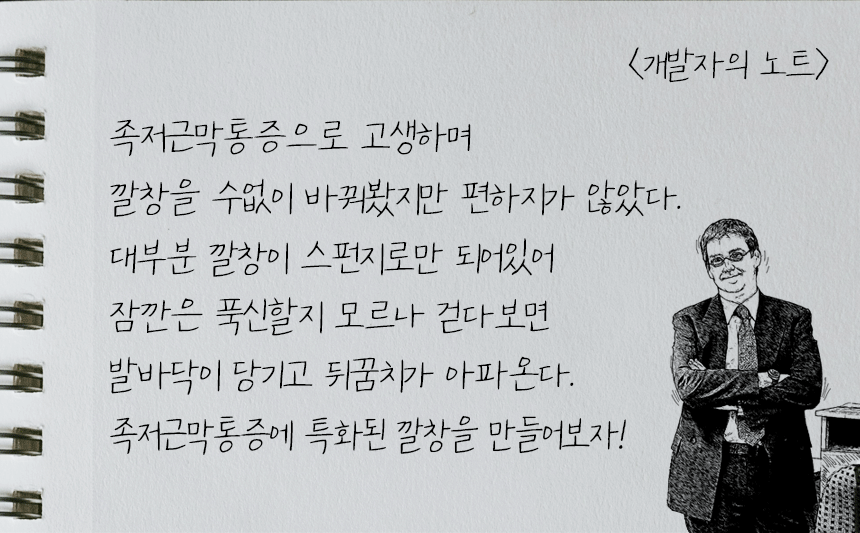 <개발자의 노트>
족저근막통증으로 고생하며
깔창을 수없이 바꿔봤지만 편하지가 않았다.
대부분 깔창이 스펀지로만 되어있어
잠깐은 푹신할지 모르나 걷다보면
발바닥이 당기고 뒤꿈치가 아파온다.
족저근막통증에 특화된 깔창을 만들어보자!